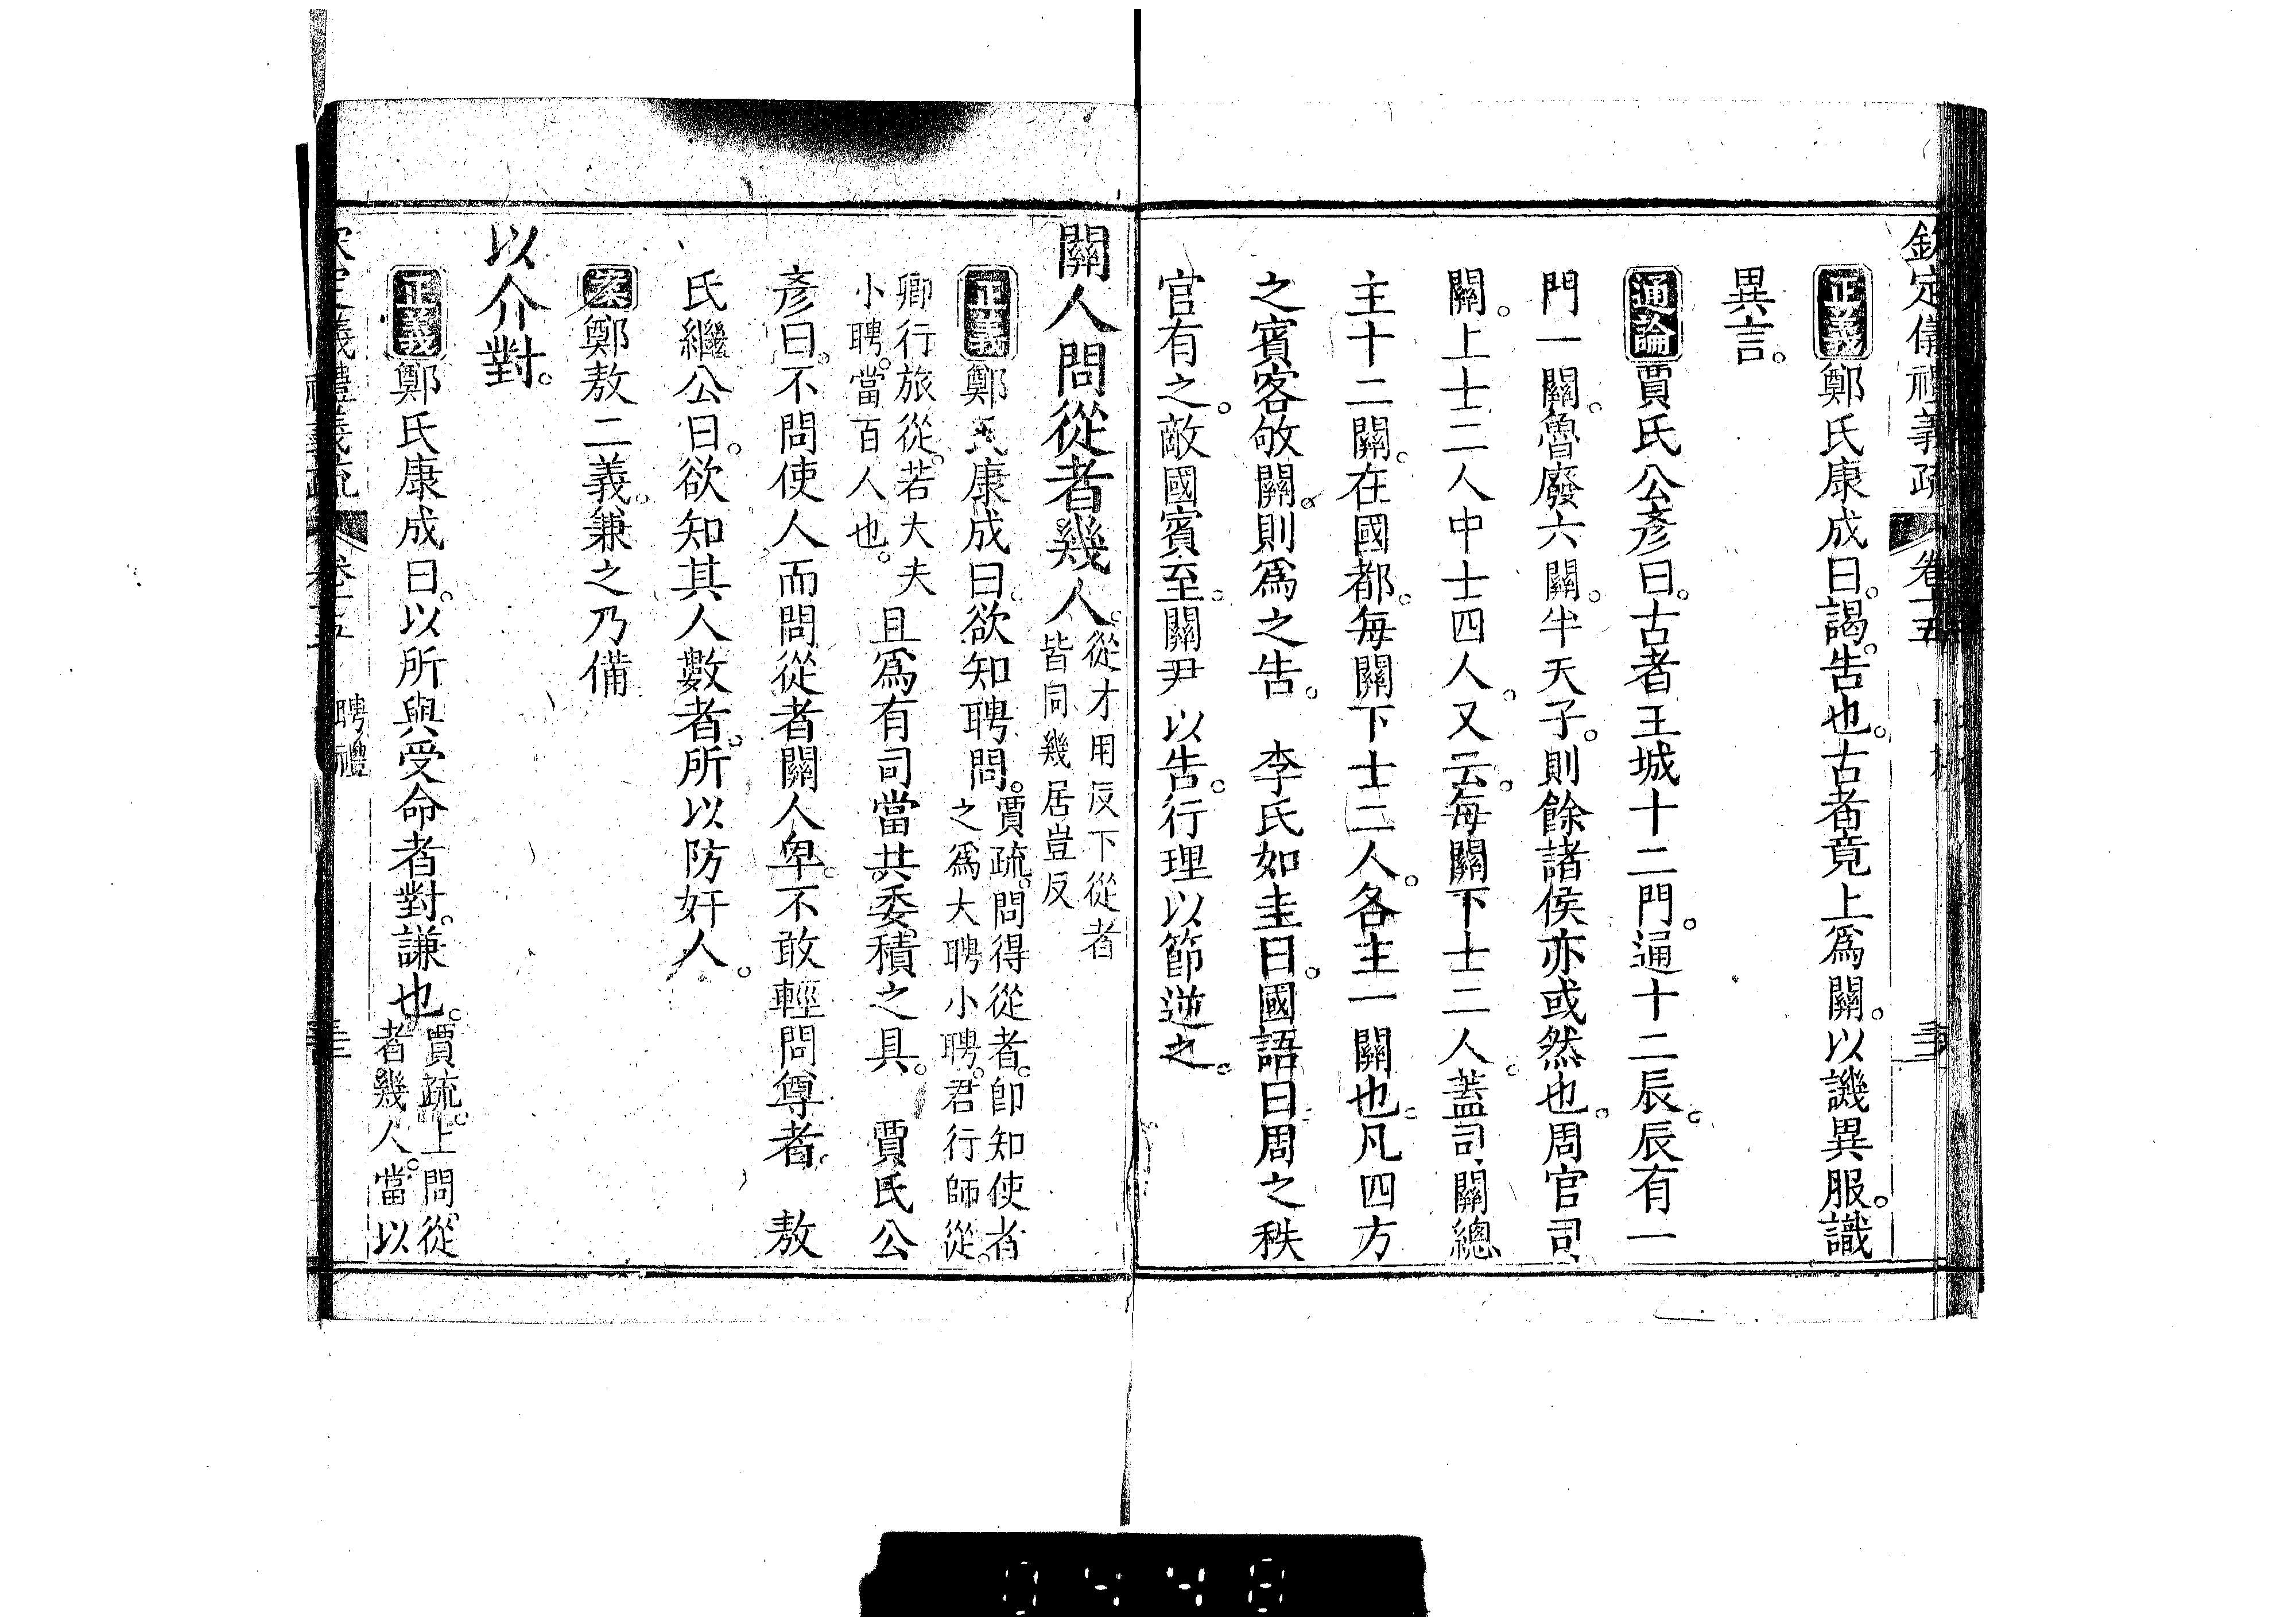 欽定儀禮義疏 卷十五
正義鄭氏康成曰謁告也古者竟上爲關以譏異服識
異言
通論賈氏公彥曰古者王城十二門通十二辰辰有一
門一關魯廢六關半天子則餘諸侯亦或然也周官司
關上士二人中士四人又云每關下士二人蓋司關總
主十二關在國都每關下士二人各主一關也凡四方
之賓客敂關則爲之告 李氏如圭曰國語曰周之秩
官有之敵國賓至關尹以告行理以節逆之
關人問從者幾人從才用反下從者
皆同幾居豈反
正義鄭氏康成曰欲知聘問賈疏問得從者卽知使者
之爲大聘小聘君行師從
卿行旅從若大夫
小聘當百人也
且爲有司當共委積之具 賈氏公
彥曰不問使人而問從者關人卑不敢輕問尊者 敖
氏繼公曰欲知其人數者所以防奸人
案鄭敖二義兼之乃備
以介對
正義鄭氏康成曰以所與受命者對謙也賈疏上問從
者幾人當以
義禮義疏 卷十五 聘禮